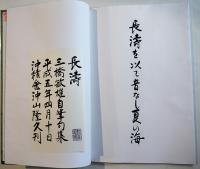 長濤を以て音なし夏の海
長濤
三橋敏雄自筆句集
平成五年四月十日
沖積舎沖山隆久刊